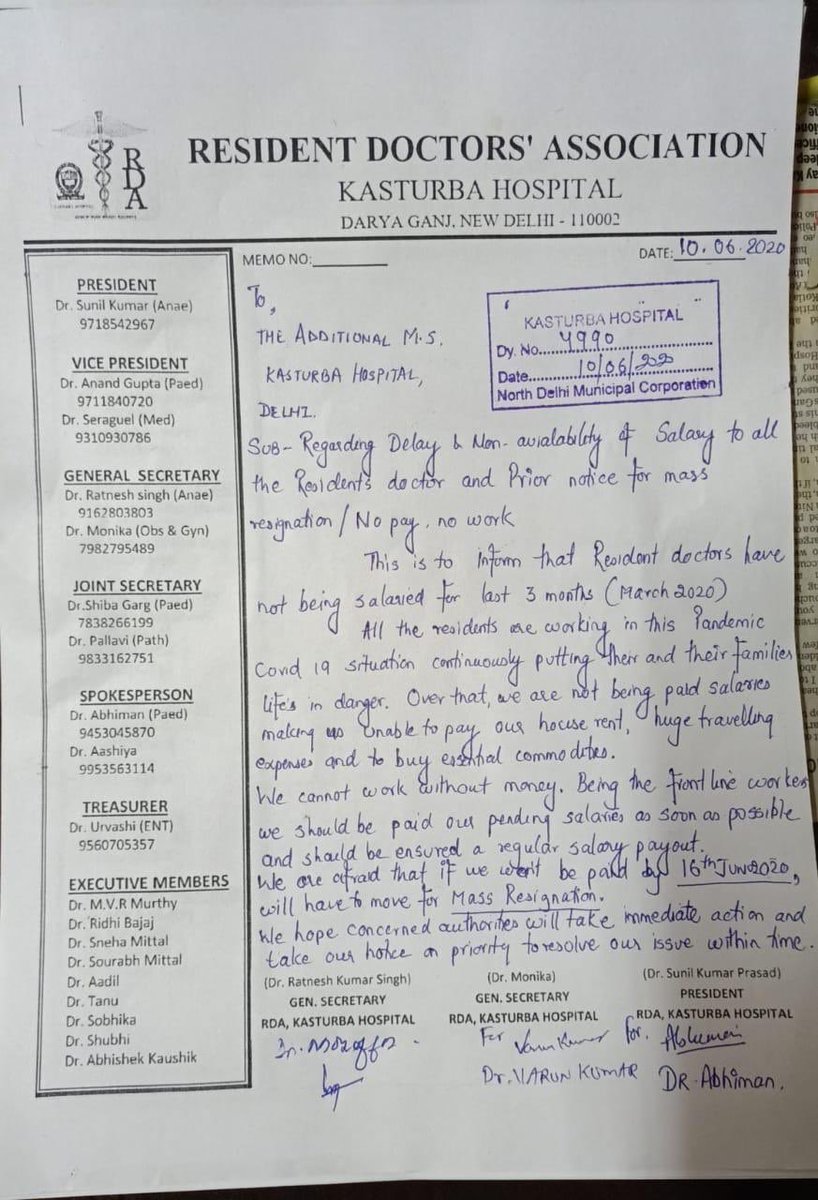 RDA
RESIDENT DOCTORS' ASSOCIATION
KASTURBA HOSPITAL
DARYA GANJ, NEW DELHI - 110002
MEMO NO:
DATE: 10.06.2020
PRESIDENT
Dr. Sunil Kumar (Anae)
9718542967
VICE PRESIDENT
Dr. Anand Gupta (Paed)
9711840720
Dr. Seraguel (Med)
9310930786
GENERAL SECRETARY
Dr. Ratnesh singh (Anae)
9162803803
Dr. Monika (Obs & Gyn)
7982795489
JOINT SECRETARY
Dr.Shiba Garg (Paed)
7838266199
Dr. Pallavi (Path)
9833162751
SPOKESPERSON
Dr. Abhiman (Paed)
9453045870
Dr. Aashiya
9953563114
TREASURER
Dr. Urvashi (ENT)
9560705357
EXECUTIVE MEMBERS
Dr. M.V.R Murthy
Dr. Ridhi Bajaj
Dr. Sneha Mittal
Dr. Sourabh Mittal
Dr. Aadil
Dr. Tanu
Dr. Sobhika
Dr. Shubhi
Dr. Abhishek Kaushik
To,
THE ADDITIONAL M.S.
KASTURBA HOSPITAL,
DELHI.
KASTURBA HOSPITAL
Dy. No. 4990
Date 10/06/2020
North Delhi Municipal Corporation
SUB- Regarding Delay & Non-avialability of Salary to all
the Resident's doctor and Prior notice for mass
resignation / No pay, no work
This is to inform that Resident doctors have
not being salaried for last 3 months (March 2020)
All the residents are working in this Pandemic
Covid 19 situation continuously putting their and their families
life's in danger. Over that, we are not being paid salaries
making us unable to pay our house rent, huge travelling
expenses and to buy essential commodities.
We cannot work without money. Being the frontline worker
we should be paid our pending salaries as soon as possible
and should be ensured a regular salary payout.
We are afraid that if we won't be paid by 16th JUN 2020,
will have to move for Mass Resignation.
We hope concerned authorities will take immediate action and
take our notice on priority to resolve our issue within time.
(Dr. Ratnesh Kumar Singh)
GEN. SECRETARY
RDA, KASTURBA HOSPITAL
(Dr. Monika)
GEN. SECRETARY
RDA, KASTURBA HOSPITAL
For Varun Kumar
Dr. VARUN KUMAR
(Dr. Sunil Kumar Prasad)
PRESIDENT
RDA, KASTURBA HOSPITAL
for.
DR. Abhiman.